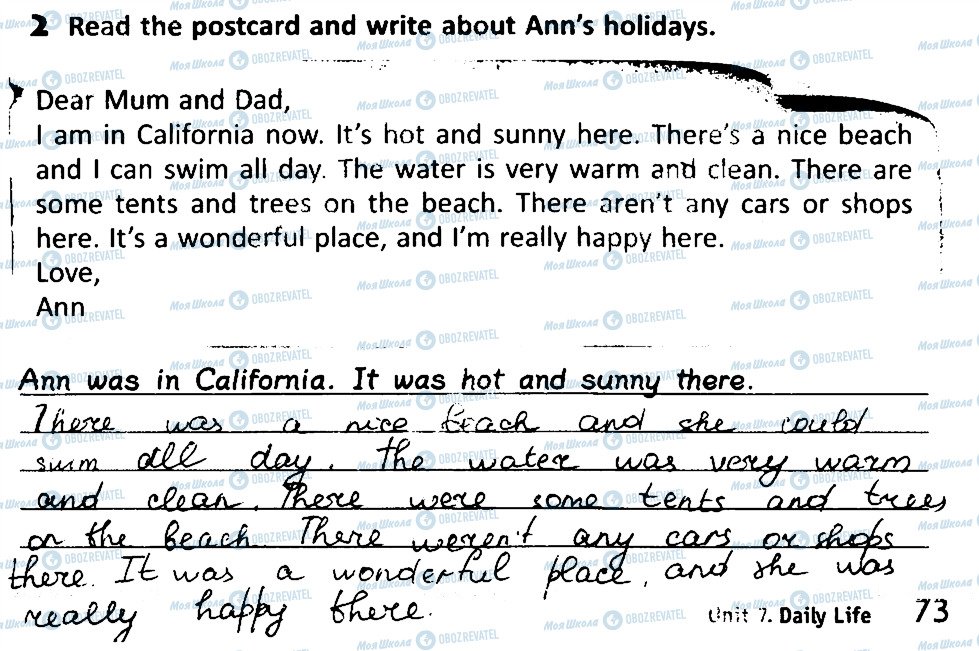 2 Read the postcard and write about Ann's holidays.
Dear Mum and Dad,
I am in California now. It's hot and sunny here. There's a nice beach
and I can swim all day. The water is very warm and clean. There are
some tents and trees on the beach. There aren't any cars or shops
here. It's a wonderful place, and I'm really happy here.
Love,
Ann
Ann was in California. It was hot and sunny there.
There was a nice beach and she could
swim all day. The water was very warm
and clean. There were some tents and trees
on the beach. There weren't any cars or shops
there. It was a wonderful place, and she was
really happy there.
Unit 7. Daily Life 73
Моя Школа OBOZREVATEL